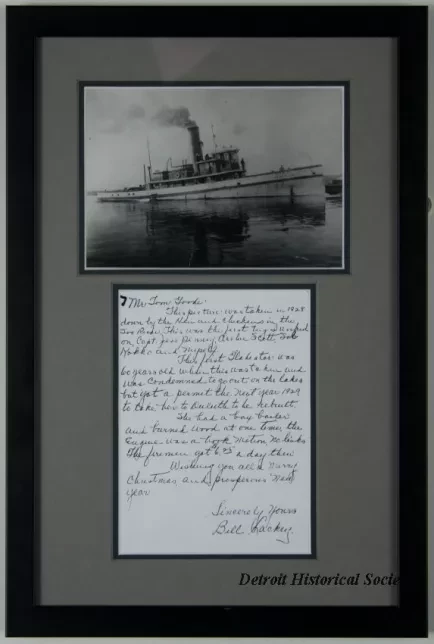 Mr Tom Goode.
This picture was taken in 1928
down by the Hen and Chickens in the
This was the first tug I worked
on, Capt. Jess Penny, Archie Scott,
and myself
This first was
60 years old when this was taken and
was condemned to go out on the lakes
but got a permit the next year 1929
to take her to Duluth to be rebuilt.
She had a box boiler
and burned wood at one time, the
Engine was a motion no links
The firemen got a day then
Wishing you all a Merry
Christmas and prosperous New
year
Sincerely Yours
Bill Lackey
Detroit Historical Socie